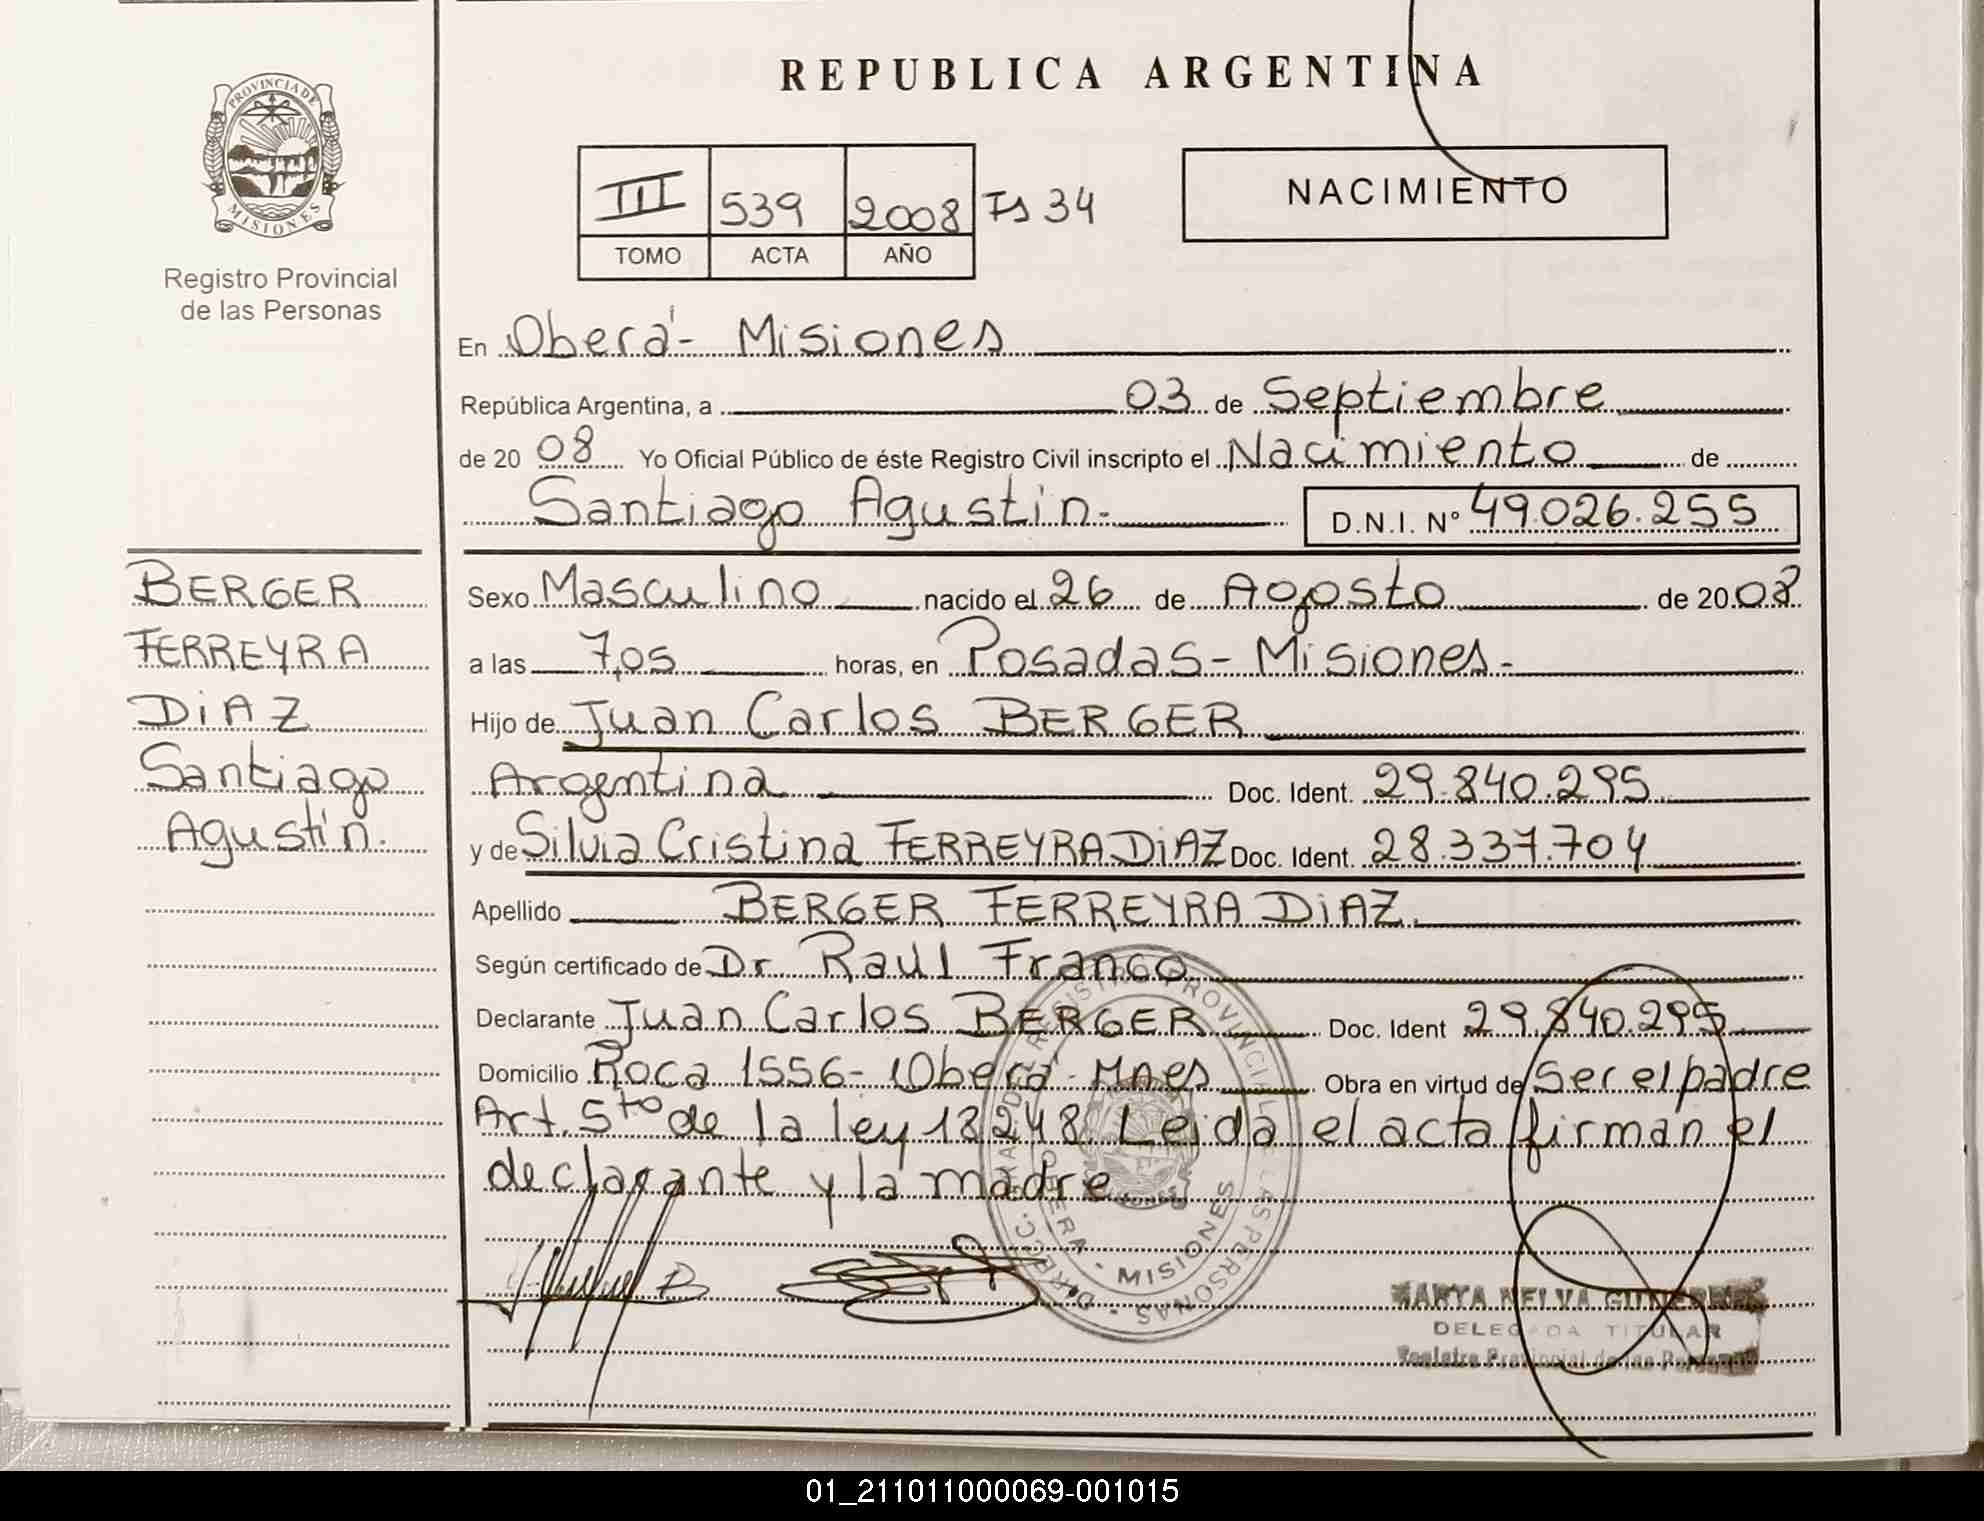 PROVINCIA DE
MISIONES
Registro Provincial
de las Personas
REPUBLICA ARGENTINA
III 539 2008 Fs 34
TOMO ACTA AÑO
NACIMIENTO
En Oberá - Misiones
República Argentina, a 03 de Septiembre
de 2008 Yo Oficial Público de éste Registro Civil inscripto el Nacimiento de
Santiago Agustín.- D.N.I. Nº 49.026.255
BERGER
FERREYRA
DiAZ
Santiago
Agustín.
Sexo Masculino nacido el 26 de Agosto de 2008
a las 7,05 horas, en Posadas - Misiones.-
Hijo de Juan Carlos BERGER
Argentina Doc. Ident. 29.840.295
y de Silvia Cristina FERREYRA DiAZ Doc. Ident. 28.337.704
Apellido BERGER FERREYRA DiAZ
Según certificado de Dr Raúl Franco
Declarante Juan Carlos BERGER Doc. Ident 29.840.295
Domicilio Roca 1556 - Oberá - Mnes Obra en virtud de Ser el padre
Art. 5to de la ley 18248. Leida el acta firman el
declarante y la madre
DIRECC. GRAL. DE REGISTRO PROVINCIAL DE LAS PERSONAS
OBERA - MISIONES
DELEGADA TITULAR
Registro Provincial de las Personas
01_211011000069-001015